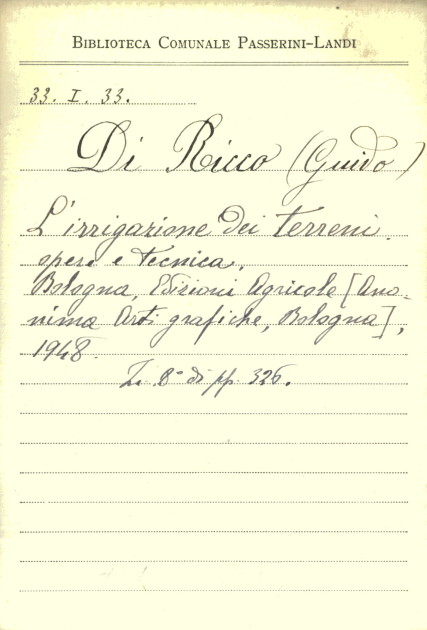 BIBLIOTECA COMUNALE PASSERINI-LANDI
33. I. 33.
Di Ricco (Guido)
L'irrigazione dei terreni.
opere e tecnica.
Bologna, Edizioni Agricole [Ano-
nima Arti grafiche, Bologna],
1948.
8° di pp. 326.